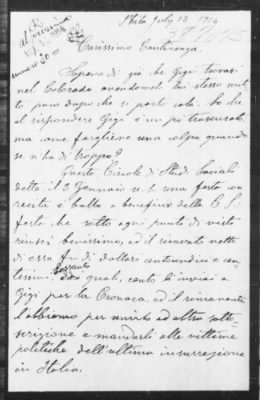 Phila July 12 1914
Carissimo
Sapevo di già che Gigi trovasi
nel Colorado avendomelo lui stesso scrit
to poco dopo che si portò colà. So che
al rispondere Gigi è un pò trascurato,
ma come fargliene una colpa quando
se n'ha di troppo?
Questo Circolo di Studi Sociali
dette, il 2 Gennaio u. s. una festa con
recita e ballo a beneficio della C. S.
festa che sotto ogni punto di vista
riuscì benissimo, ed il ricavato netto
di essa fu di dollari centoundici e cen-
tesimi sessanta, dei quali, cento li inviai a
Gigi per la Cronaca, ed il rimanente
l'abbiamo per unirlo ad altra sotto
scrizione e mandarli alle vittime
politiche dell'ultima insurrezione
in Italia.